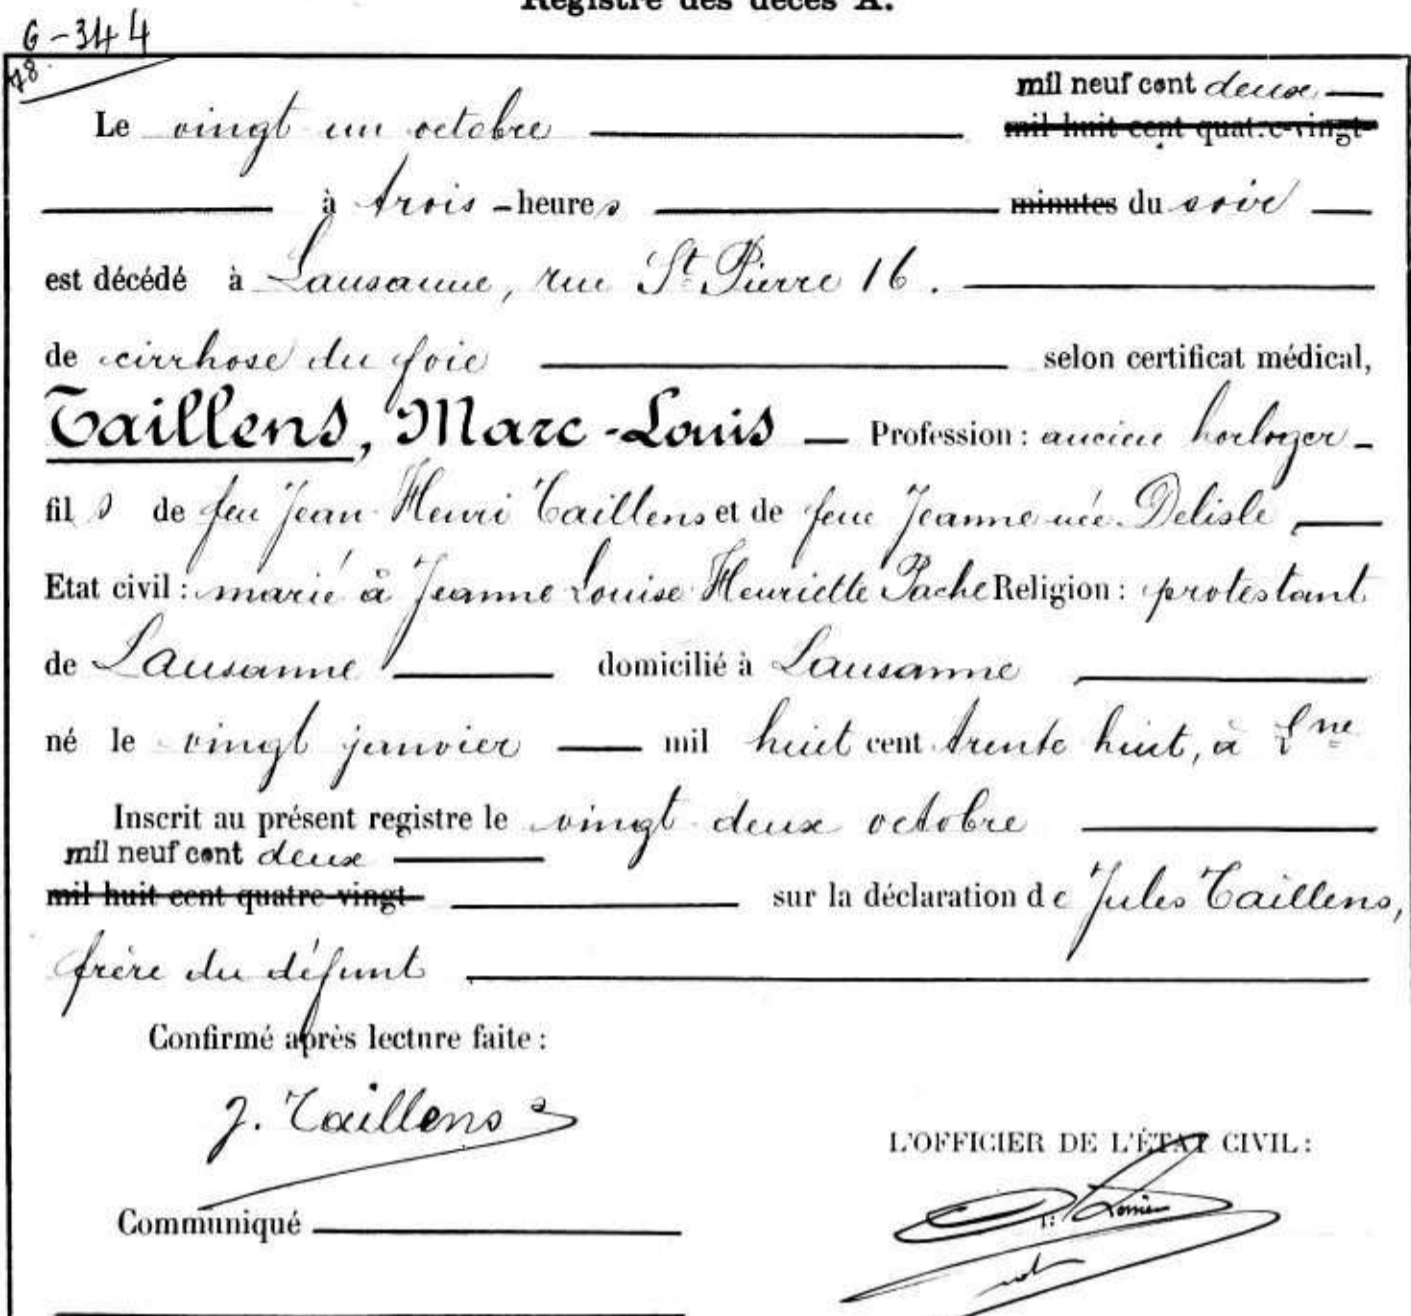 Registre des décès A.
6-344
78.
mil neuf cent deux
Le vingt un octobre mil huit cent quatre-vingt
à trois heures minutes du soir
est décédé à Lausanne, rue St Pierre 16.
de cirrhose du foie selon certificat médical,
Taillens, Marc-Louis — Profession : ancien horloger
fils de feu Jean Henri Taillens et de feue Jeanne née Delisle
Etat civil : marié à Jeanne Louise Henriette Pache Religion : protestant
de Lausanne domicilié à Lausanne
né le vingt janvier mil huit cent trente huit, à Lne
Inscrit au présent registre le vingt deux octobre
mil neuf cent deux
mil huit cent quatre-vingt sur la déclaration de Jules Taillens,
frère du défunt
Confirmé après lecture faite :
J. Taillens
L'OFFICIER DE L'ÉTAT CIVIL :
Communiqué